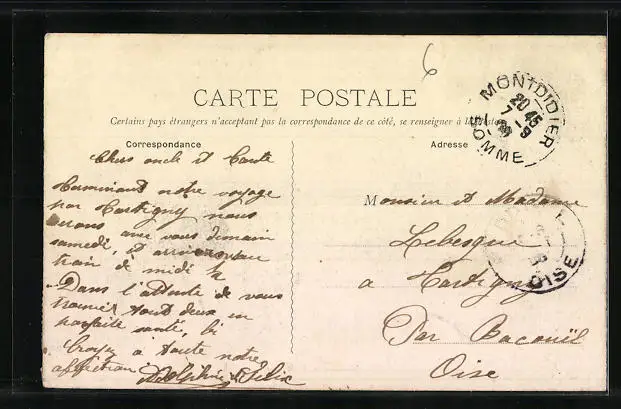 6
CARTE POSTALE
Certains pays étrangers n'acceptant pas la correspondance de ce côté, se renseigner à la Poste
Correspondance
Adresse
MONTDIDIER
20 45
7 - 9
SOMME
OISE
Chers oncle et tante
Terminant notre voyage
par Hartigny nous
serons avec vous demain
samedi, et arriverons au
train de midi ½
Dans l'attente de vous
trouver tout deux en
parfaite santé,
Croyez à toute notre
affection Adolphine et Félix
Monsieur et Madame
Lebesgue
a Hartigny
Par Bacouël
Oise